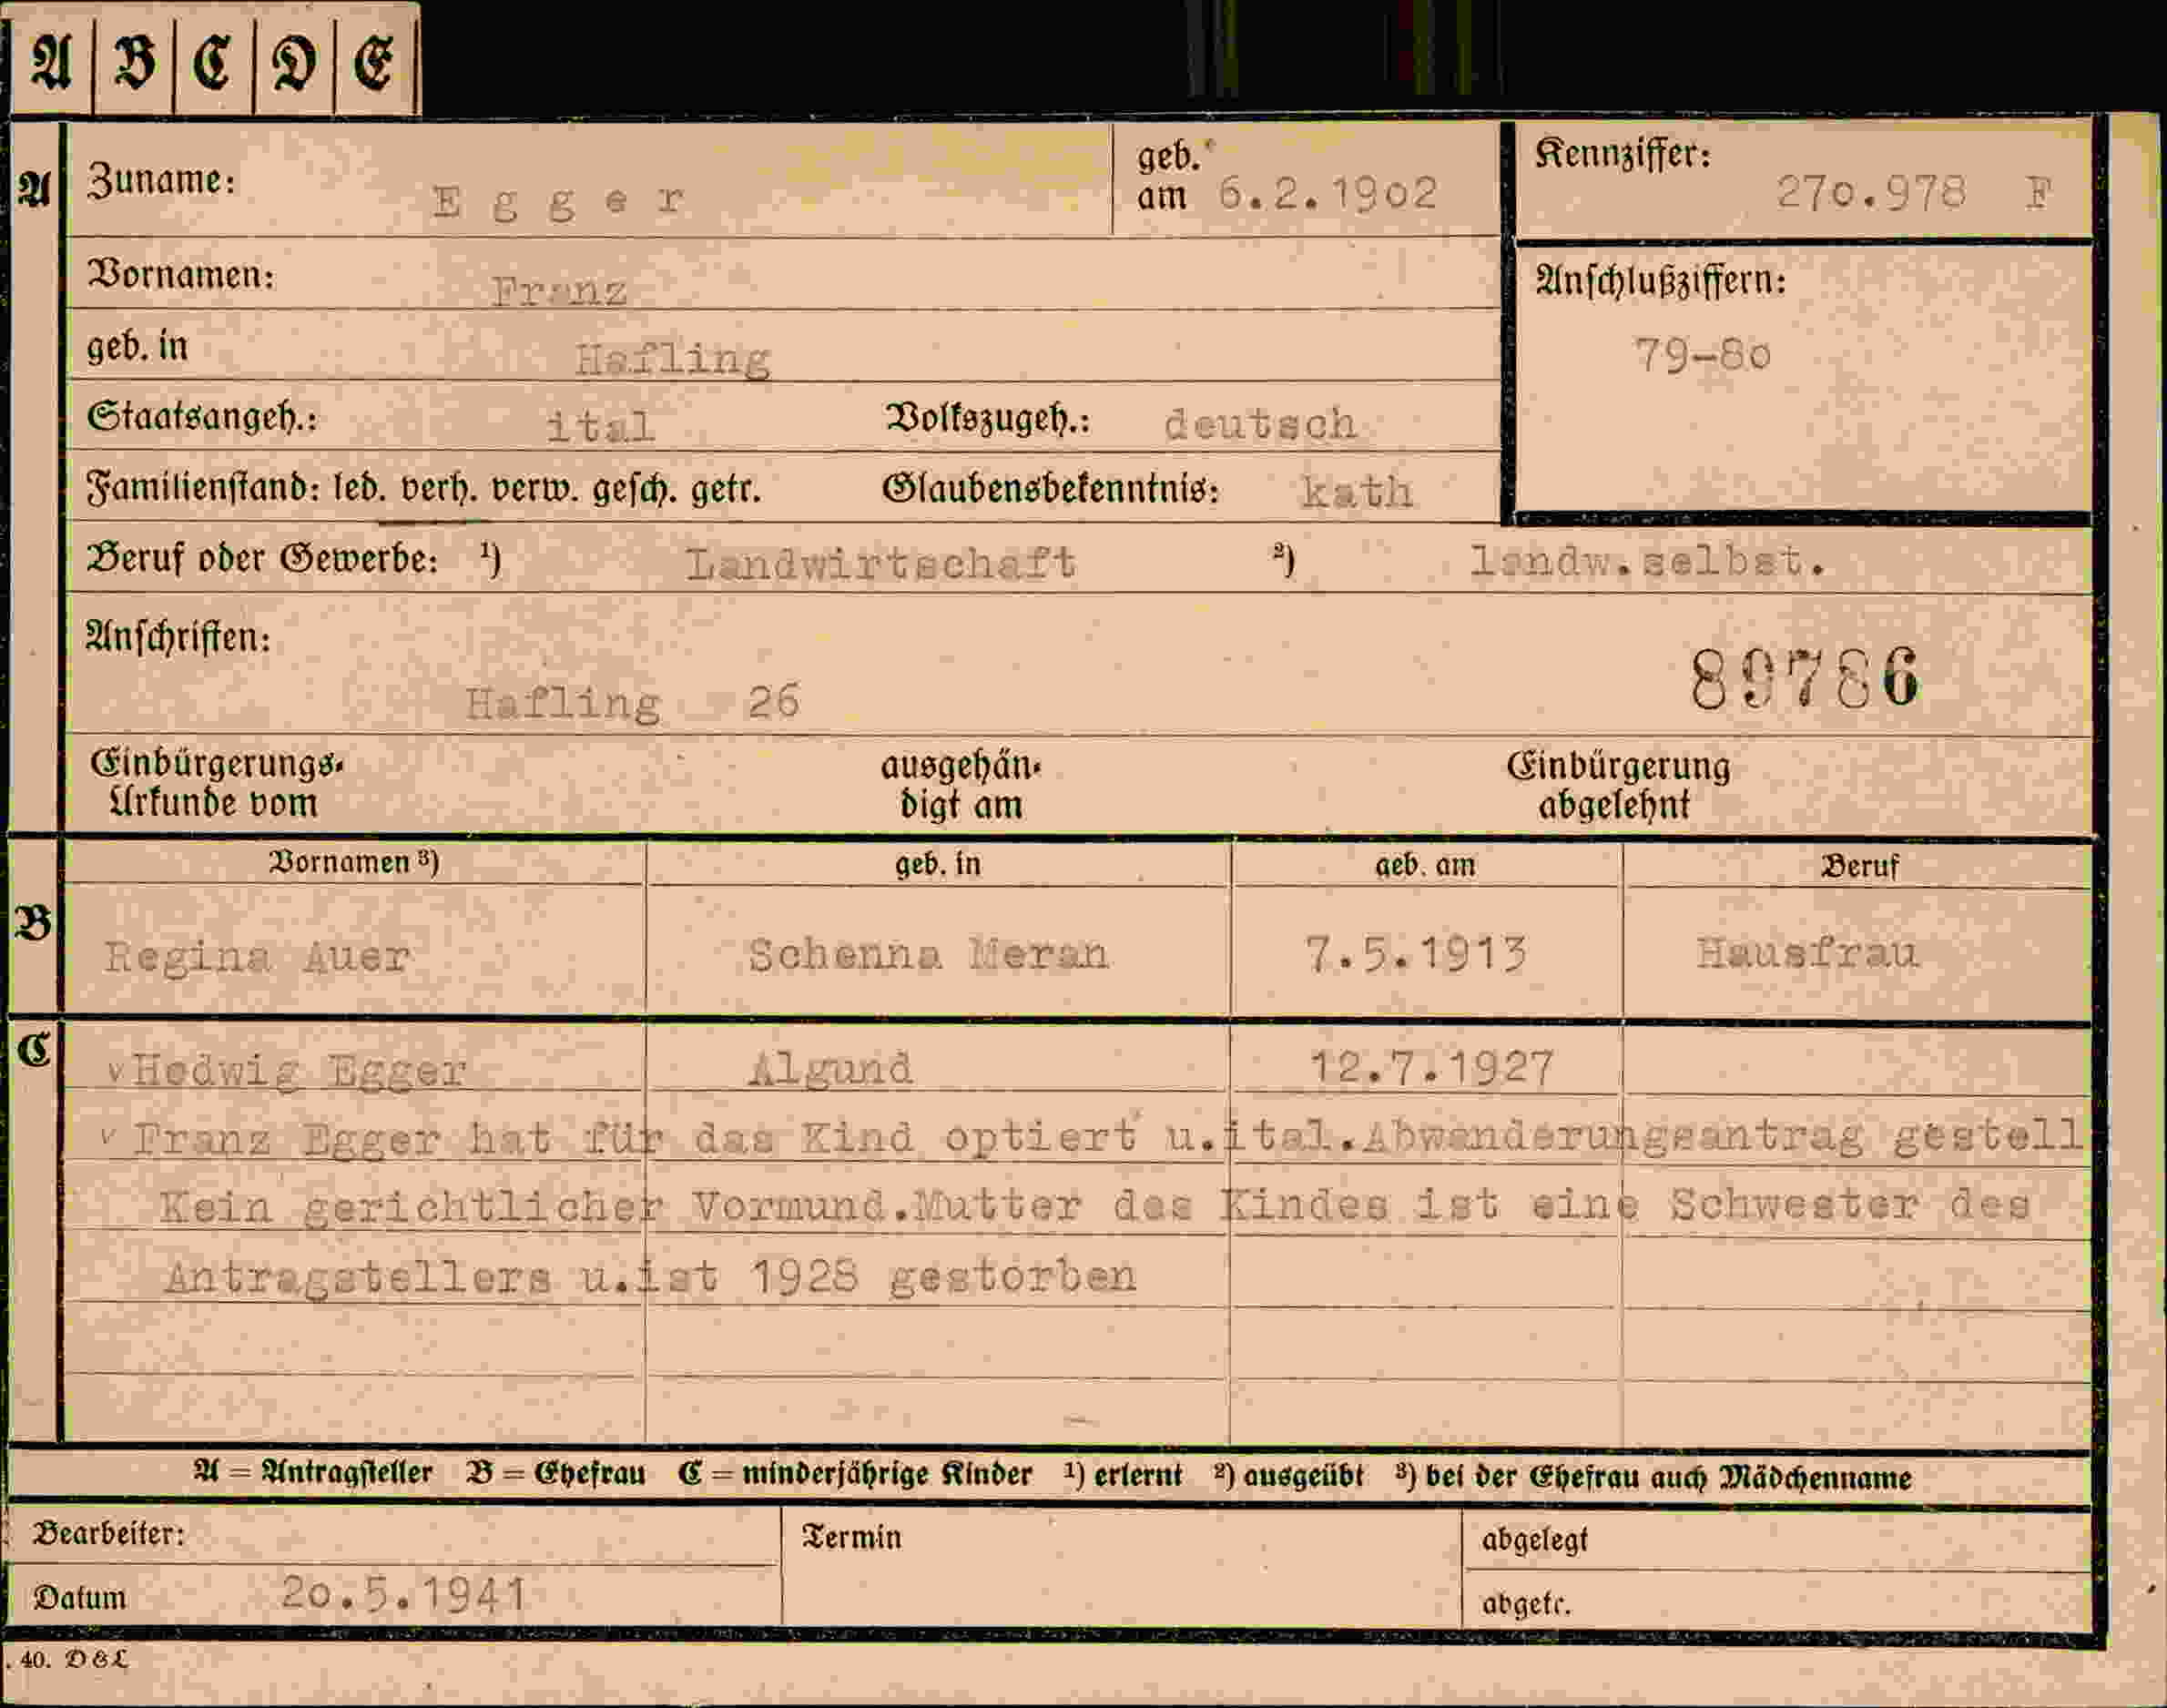 A B C D E
A Zuname: Egger geb. am 6.2.1902 Kennziffer: 270.978 F
Vornamen: Franz Anschlußziffern:
geb. in Hafling 79-80
Staatsangeh.: ital Volkszugeh.: deutsch
Familienstand: led. verh. verw. gesch. getr. Glaubensbekenntnis: kath
Beruf oder Gewerbe: 1) Landwirtschaft 2) landw.selbst.
Anschriften:
89786
Hafling 26
Einbürgerungs- ausgehän- Einbürgerung
Urkunde vom digt am abgelehnt
Vornamen 3) geb. in geb. am Beruf
B Regina Auer Schenna Meran 7.5.1913 Hausfrau
C v Hedwig Egger Algund 12.7.1927
v Franz Egger hat für das Kind optiert u.ital.Abwanderungsantrag gestell
Kein gerichtlicher Vormund.Mutter des Kindes ist eine Schwester des
Antragstellers u.ist 1928 gestorben
A = Antragsteller B = Ehefrau C = minderjährige Kinder 1) erlernt 2) ausgeübt 3) bei der Ehefrau auch Mädchenname
Bearbeiter: Termin abgelegt
Datum 20.5.1941 abgetr.
. 40. D & L